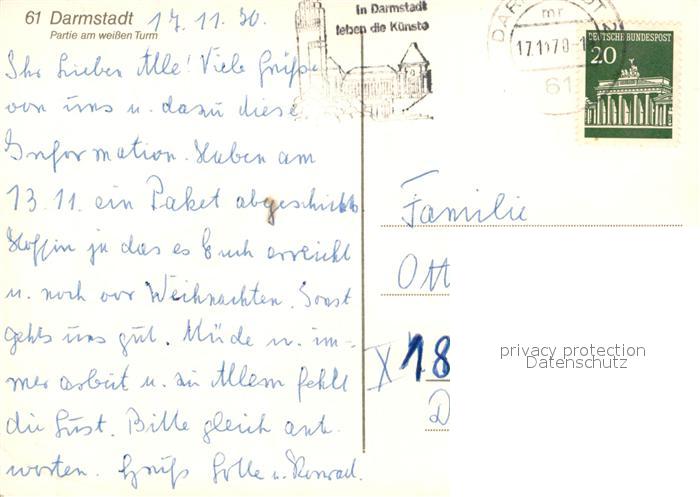 61 Darmstadt
Partie am weißen Turm
17. 11. 70.
Ihr Lieben Alle! Viele Grüße
von uns u. dazu diese
Information. Haben am
13. 11. ein Paket abgeschickt.
Hoffen ja das es Euch erreicht
u. noch vor Weihnachten. Sonst
gehts uns gut. Müde u. im-
mer arbeit u. zu Allem fehlt
die Lust. Bitte gleich ant-
worten. Gruß Lotte u. Konrad.
In Darmstadt
leben die Künste
DARMSTADT 2
mr
17.11.70-1
61
DEUTSCHE BUNDESPOST
20
Familie
Ott
X 18
D
privacy protection
Datenschutz